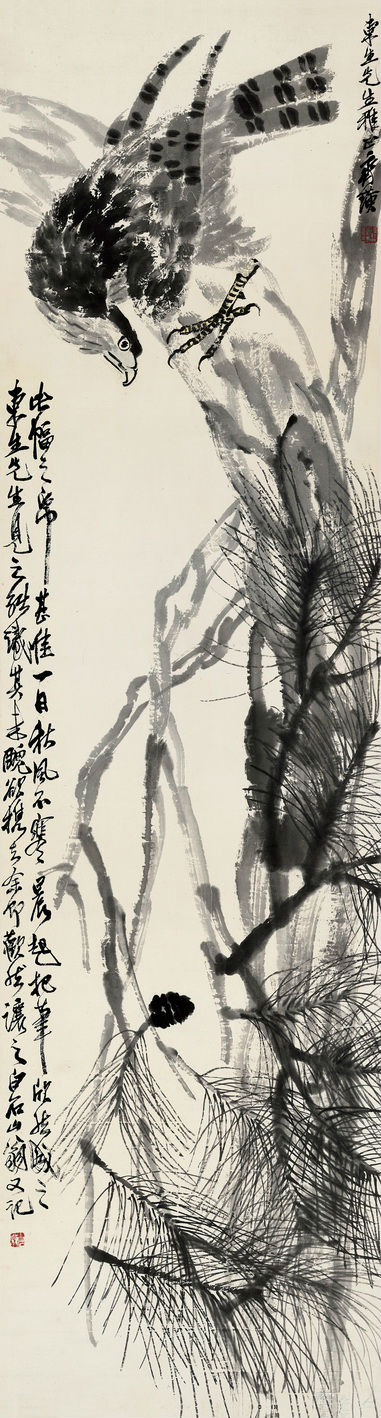 東生先生雅正 齊璜
此幅之紙甚佳一日秋風不寒晨起把筆欣然成之
東生先生見之能識其未醜欲攜去余即歡然讓之白石山翁又記